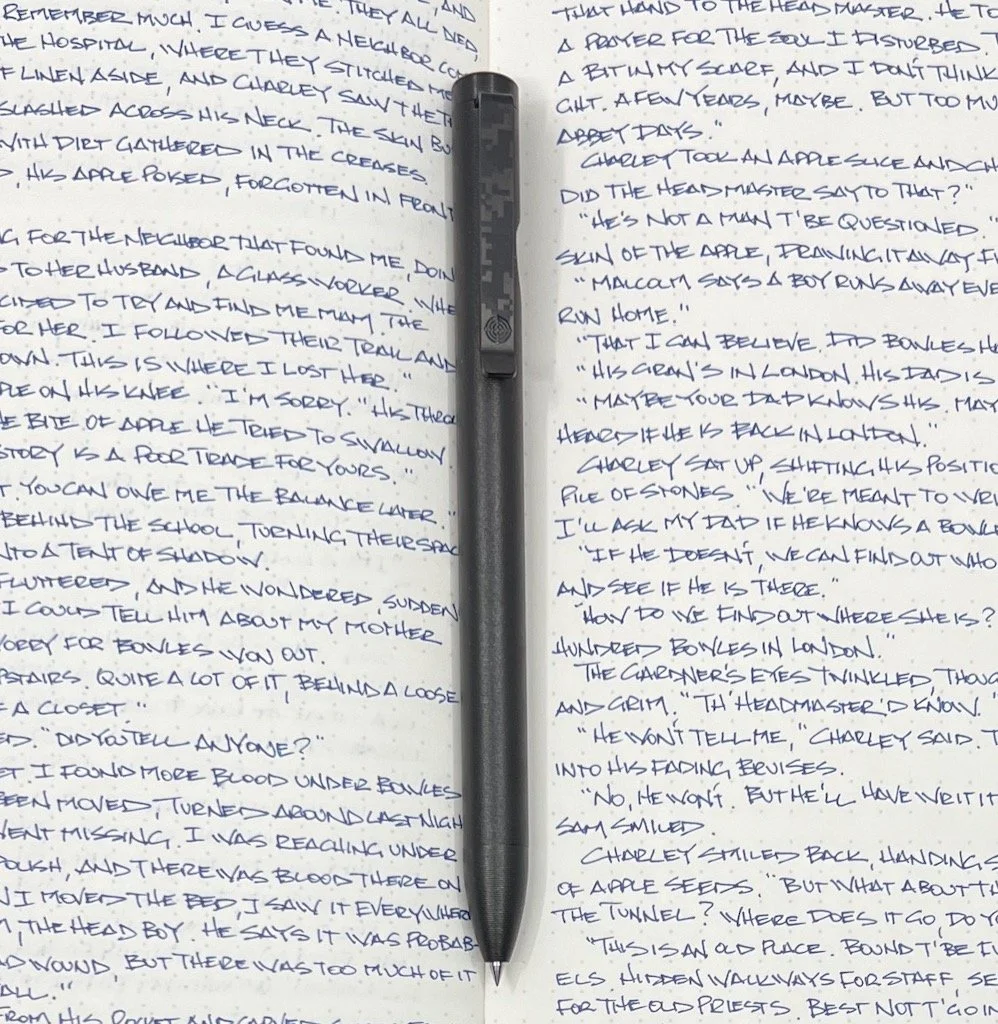 ME. THEY ALL DIED, AND
REMEMBER MUCH. I GUESS A NEIGHBOR
HE HOSPITAL, WHERE THEY STITCHED ME
F LINEN ASIDE, AND CHARLEY SAW THE
SLASHED ACROSS HIS NECK. THE SKIN
WITH DIRT GATHERED IN THE CREASES.
HIS APPLE POISED, FORGOTTEN IN FRONT
G FOR THE NEIGHBOR THAT FOUND ME, DOIN
TO HER HUSBAND, A GLASSWORKER, WHE
CIDED TO TRY AND FIND ME MAM. THE
FOR HER. I FOLLOWED THEIR TRAIL AND
OWN. THIS IS WHERE I LOST HER."
PLE ON HIS KNEE. "I'M SORRY." HIS THROA
E BITE OF APPLE HE TRIED TO SWALLOW.
STORY IS A POOR TRADE FOR YOURS."
T. YOU CAN OWE ME THE BALANCE LATER."
BEHIND THE SCHOOL, TURNING THEIR SPAC
NTO A TENT OF SHADOW.
FLUTTERED, AND HE WONDERED, SUDDEN
I COULD TELL HIM ABOUT MY MOTHER
ORRY FOR BOWLES WON OUT.
PSTAIRS. QUITE A LOT OF IT, BEHIND A LOOSE
E A CLOSET."
ED. "DID YOU TELL ANYONE?"
ET. I FOUND MORE BLOOD UNDER BOWLES
BEEN MOVED, TURNED AROUND LAST NIGH
WENT MISSING. I WAS REACHING UNDER
POLISH, AND THERE WAS BLOOD THERE ON
N I MOVED THE BED, I SAW IT EVERYWHERE
M, THE HEAD BOY. HE SAYS IT WAS PROBAB-
AD WOUND, BUT THERE WAS TOO MUCH OF IT
ALL."
FROM HIS POCKET AND CARVED
THAT HAND TO THE HEADMASTER. HE TO
A PRAYER FOR THE SOUL I DISTURBED. T
A BIT IN MY SCARF, AND I DON'T THINK
GHT. A FEW YEARS, MAYBE. BUT TOO MU
ABBEY DAYS."
CHARLEY TOOK AN APPLE SLICE AND CH
DID THE HEADMASTER SAY TO THAT?"
"HE'S NOT A MAN T'BE QUESTIONED. "
SKIN OF THE APPLE, DRAWING IT AWAY FI
"MALCOLM SAYS A BOY RUNS AWAY EVE
RUN HOME."
"THAT I CAN BELIEVE. DID BOWLES HA
"HIS GRAN'S IN LONDON. HIS DAD IS
"MAYBE YOUR DAD KNOWS HIS. MAY
HEARD IF HE IS BACK IN LONDON."
CHARLEY SAT UP, SHIFTING HIS POSITIO
PILE OF STONES. "WE'RE MEANT TO WRI
I'LL ASK MY DAD IF HE KNOWS A BOWLE
"IF HE DOESN'T, WE CAN FIND OUT WHO
AND SEE IF HE IS THERE."
"HOW DO WE FIND OUT WHERE SHE IS?
HUNDRED BOWLES IN LONDON."
THE GARDNER'S EYES TWINKLED, THOUG
AND GRIM. "TH'HEADMASTER'D KNOW.
"HE WON'T TELL ME," CHARLEY SAID. T
INTO HIS FADING BRUISES.
"NO, HE WON'T. BUT HE'LL HAVE WRIT IT
SAM SMILED.
CHARLEY SMILED BACK, HANDING S
OF APPLE SEEDS. "BUT WHAT ABOUT TH
THE TUNNEL? WHERE DOES IT GO, DO YO
"THIS IS AN OLD PLACE. BOUND T'BE FI
ELS. HIDDEN WALKWAYS FOR STAFF, SE
FOR THE OLD PRIESTS. BEST NOT T'GO IN